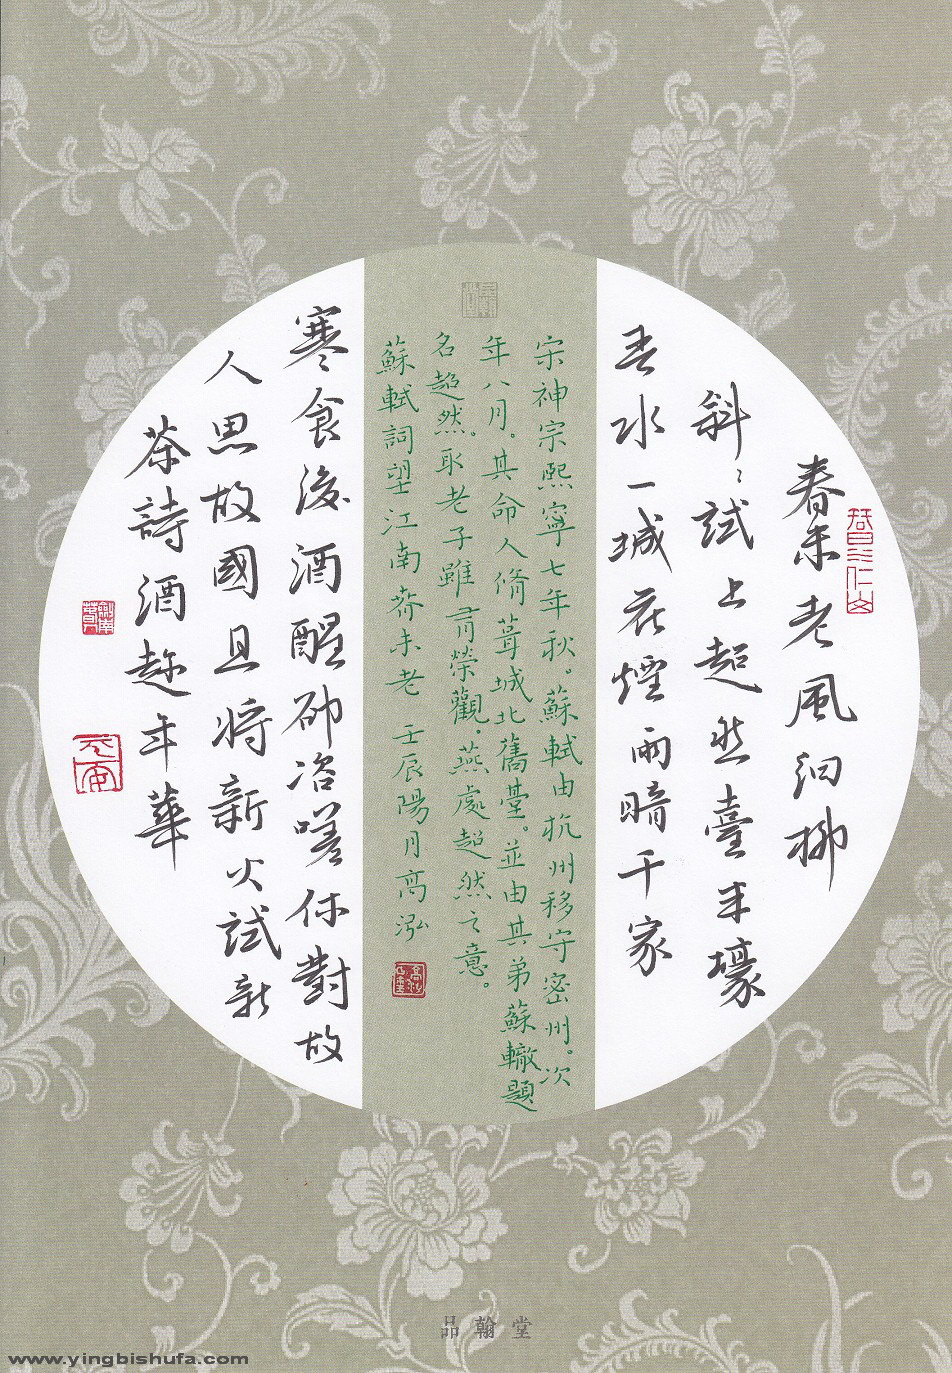 春未老風細柳
斜〻試上超然臺半壕
春水一城花煙雨暗千家
宋神宗熙寧七年秋。蘇軾由杭州移守密州。次
年八月。其命人脩葺城北舊臺。並由其弟蘇轍題
名超然。取老子雖有榮觀。燕處超然之意。
蘇軾詞望江南春未老 壬辰陽月高泓
寒食後酒醒卻咨嗟休對故
人思故國且將新火試新
茶詩酒趁年華
品翰堂
www.yingbishufa.com